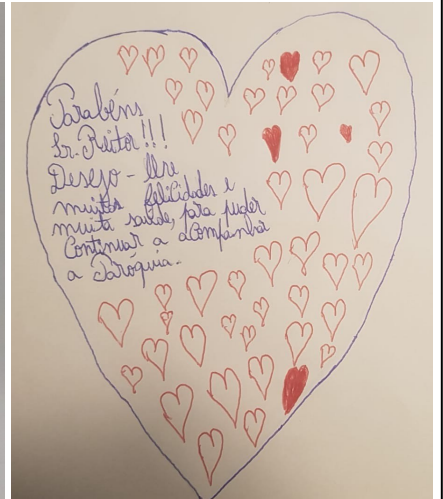 Parabéns
Sr. Reitor!!!
Desejo-lhe
muitas felicidades e
muita saúde, para puder
Continuar a acompanhar
a Paróquia.